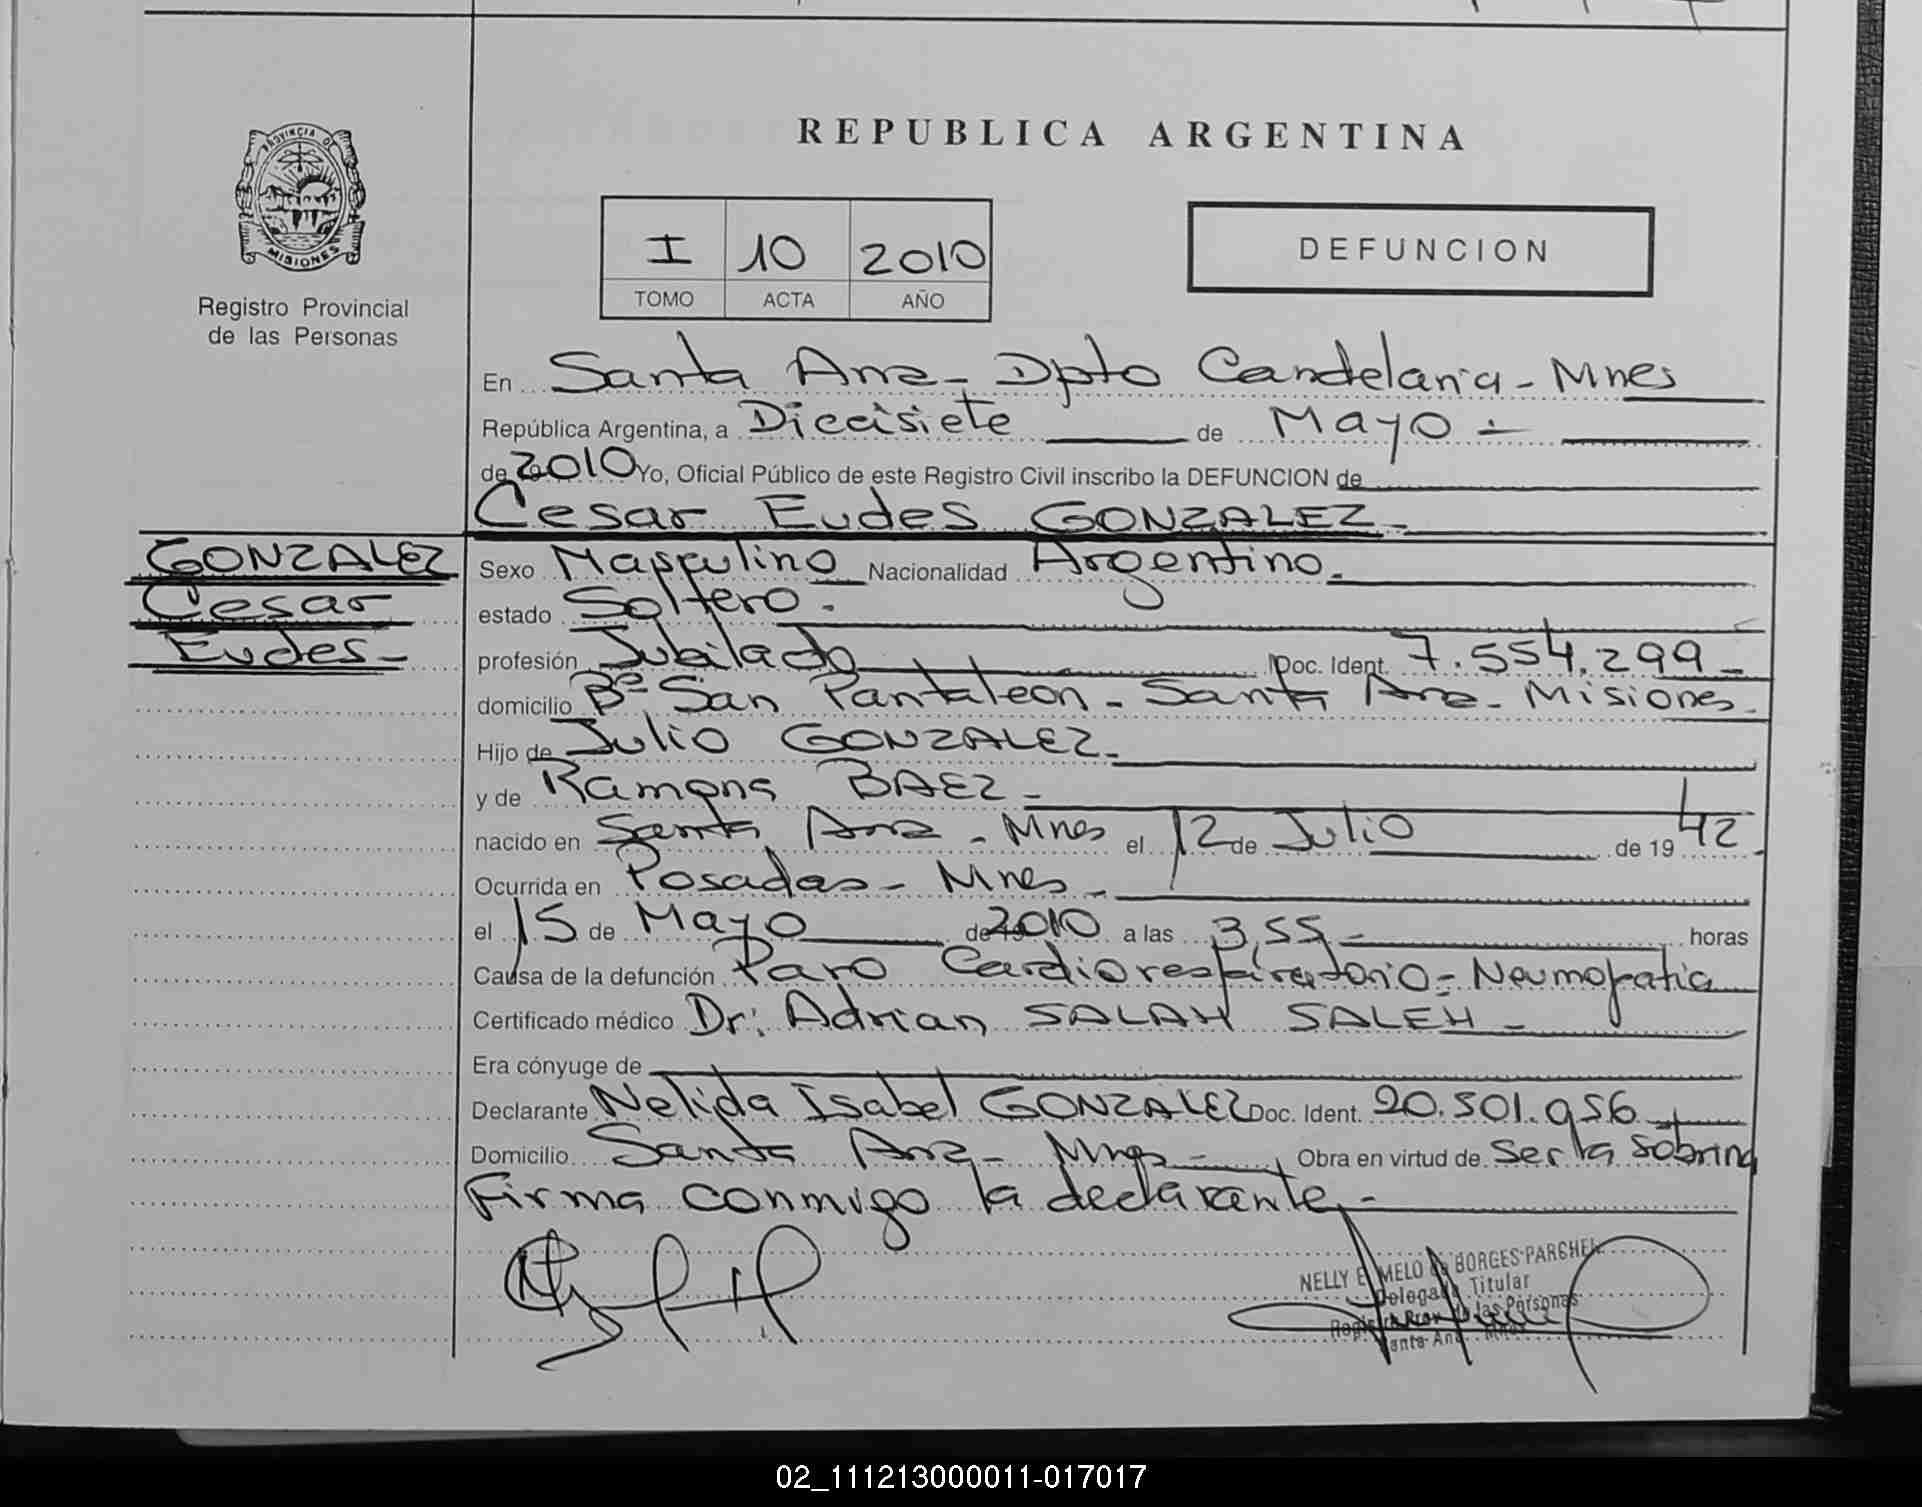 REPUBLICA ARGENTINA
PROVINCIA DE MISIONES
Registro Provincial
de las Personas
I 10 2010
TOMO ACTA AÑO
DEFUNCION
En Santa Ana - Dpto Candelaria - Mnes
República Argentina, a Diecisiete de Mayo -
de 2010 Yo, Oficial Público de este Registro Civil inscribo la DEFUNCION de
Cesar Eudes GONZALEZ -
GONZALEZ
Cesar
Eudes -
Sexo Masculino Nacionalidad Argentino.
estado Soltero.
profesión Jubilado Doc. Ident. 7.554.299 -
domicilio Bº San Pantaleon - Santa Ana - Misiones -
Hijo de Julio GONZALEZ -
y de Ramona BAEZ -
nacido en Santa Ana - Mnes el 12 de Julio de 19 42
Ocurrida en Posadas - Mnes -
el 15 de Mayo de 2010 a las 3,55 - horas
Causa de la defunción Paro Cardiorespiratorio - Neumopatia
Certificado médico Dr. Adrian SALAH SALEH -
Era cónyuge de
Declarante Nelida Isabel GONZALEZ Doc. Ident. 20.501.956
Domicilio Santa Ana - Mnes - Obra en virtud de Ser la Sobrina
Firma conmigo la declarante -
NELLY E. MELO de BORGES PARCHEN
Delegada Titular
Registro Prov. de las Personas
Santa Ana - Mnes
02_111213000011-017017